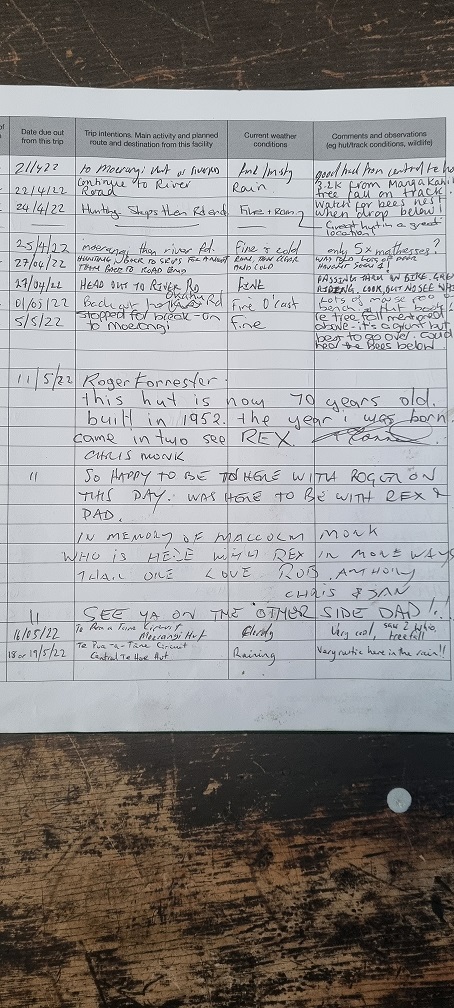 of
Date due out
from this trip
Trip intentions. Main activity and planned
route and destination from this facility
Current weather
conditions
Comments and observations
(eg hut/track conditions, wildlife)
to Moerangi Hut or
Continue to River
Road
22/4/22
Rain
3.2K from Mangakahi
tree fall on track.
24/4/22
Hunting. Skips then Rd end.
Fine + Rain
Watch for bees nest
when drop below!
Great hut in a great
location!
25/4/22
moerangi then river Rd.
Fine & cold
only 5x mattresses?
27/04/22
HUNTING BACK TO
THEN BACK TO ROAD END
RAIN, THEN CLEAR
AND COLD
29/04/22
HEAD OUT TO RIVER RD
FINE
PASSING THRU ON BIKE. GREAT
RIDING. LOOK OUT
01/05/22
Rd
Fine O'cast
Lots of mouse poo on
bench
5/5/22
Stopped for break - on
to moerangi
Fine
re tree fall mentioned
above - it's a grunt but
best to go over. Could
hear the bees below
11/5/22
Roger Forrester.
this hut is now 70 years old.
built in 1952. the year i was born.
came in two see REX
CHRIS MONK
11
SO HAPPY TO BE TO HERE WITH ROGER ON
THIS DAY. WAS HERE TO BE WITH REX &
DAD.
IN MEMORY OF MALCOLM MONK
WHO IS HERE WITH REX IN MORE WAYS
THAN ONE LOVE ROB. ANTHONY
CHRIS & JAN
11
SEE YA ON THE OTHER SIDE DAD!!
16/05/22
Circuit
Moerangi Hut
Cloudy
Very cool, saw 2 whio,
treefall
18 or 19/5/22
Circuit
Central Te Hoe Hut
Raining
Very rustic here in the rain!!